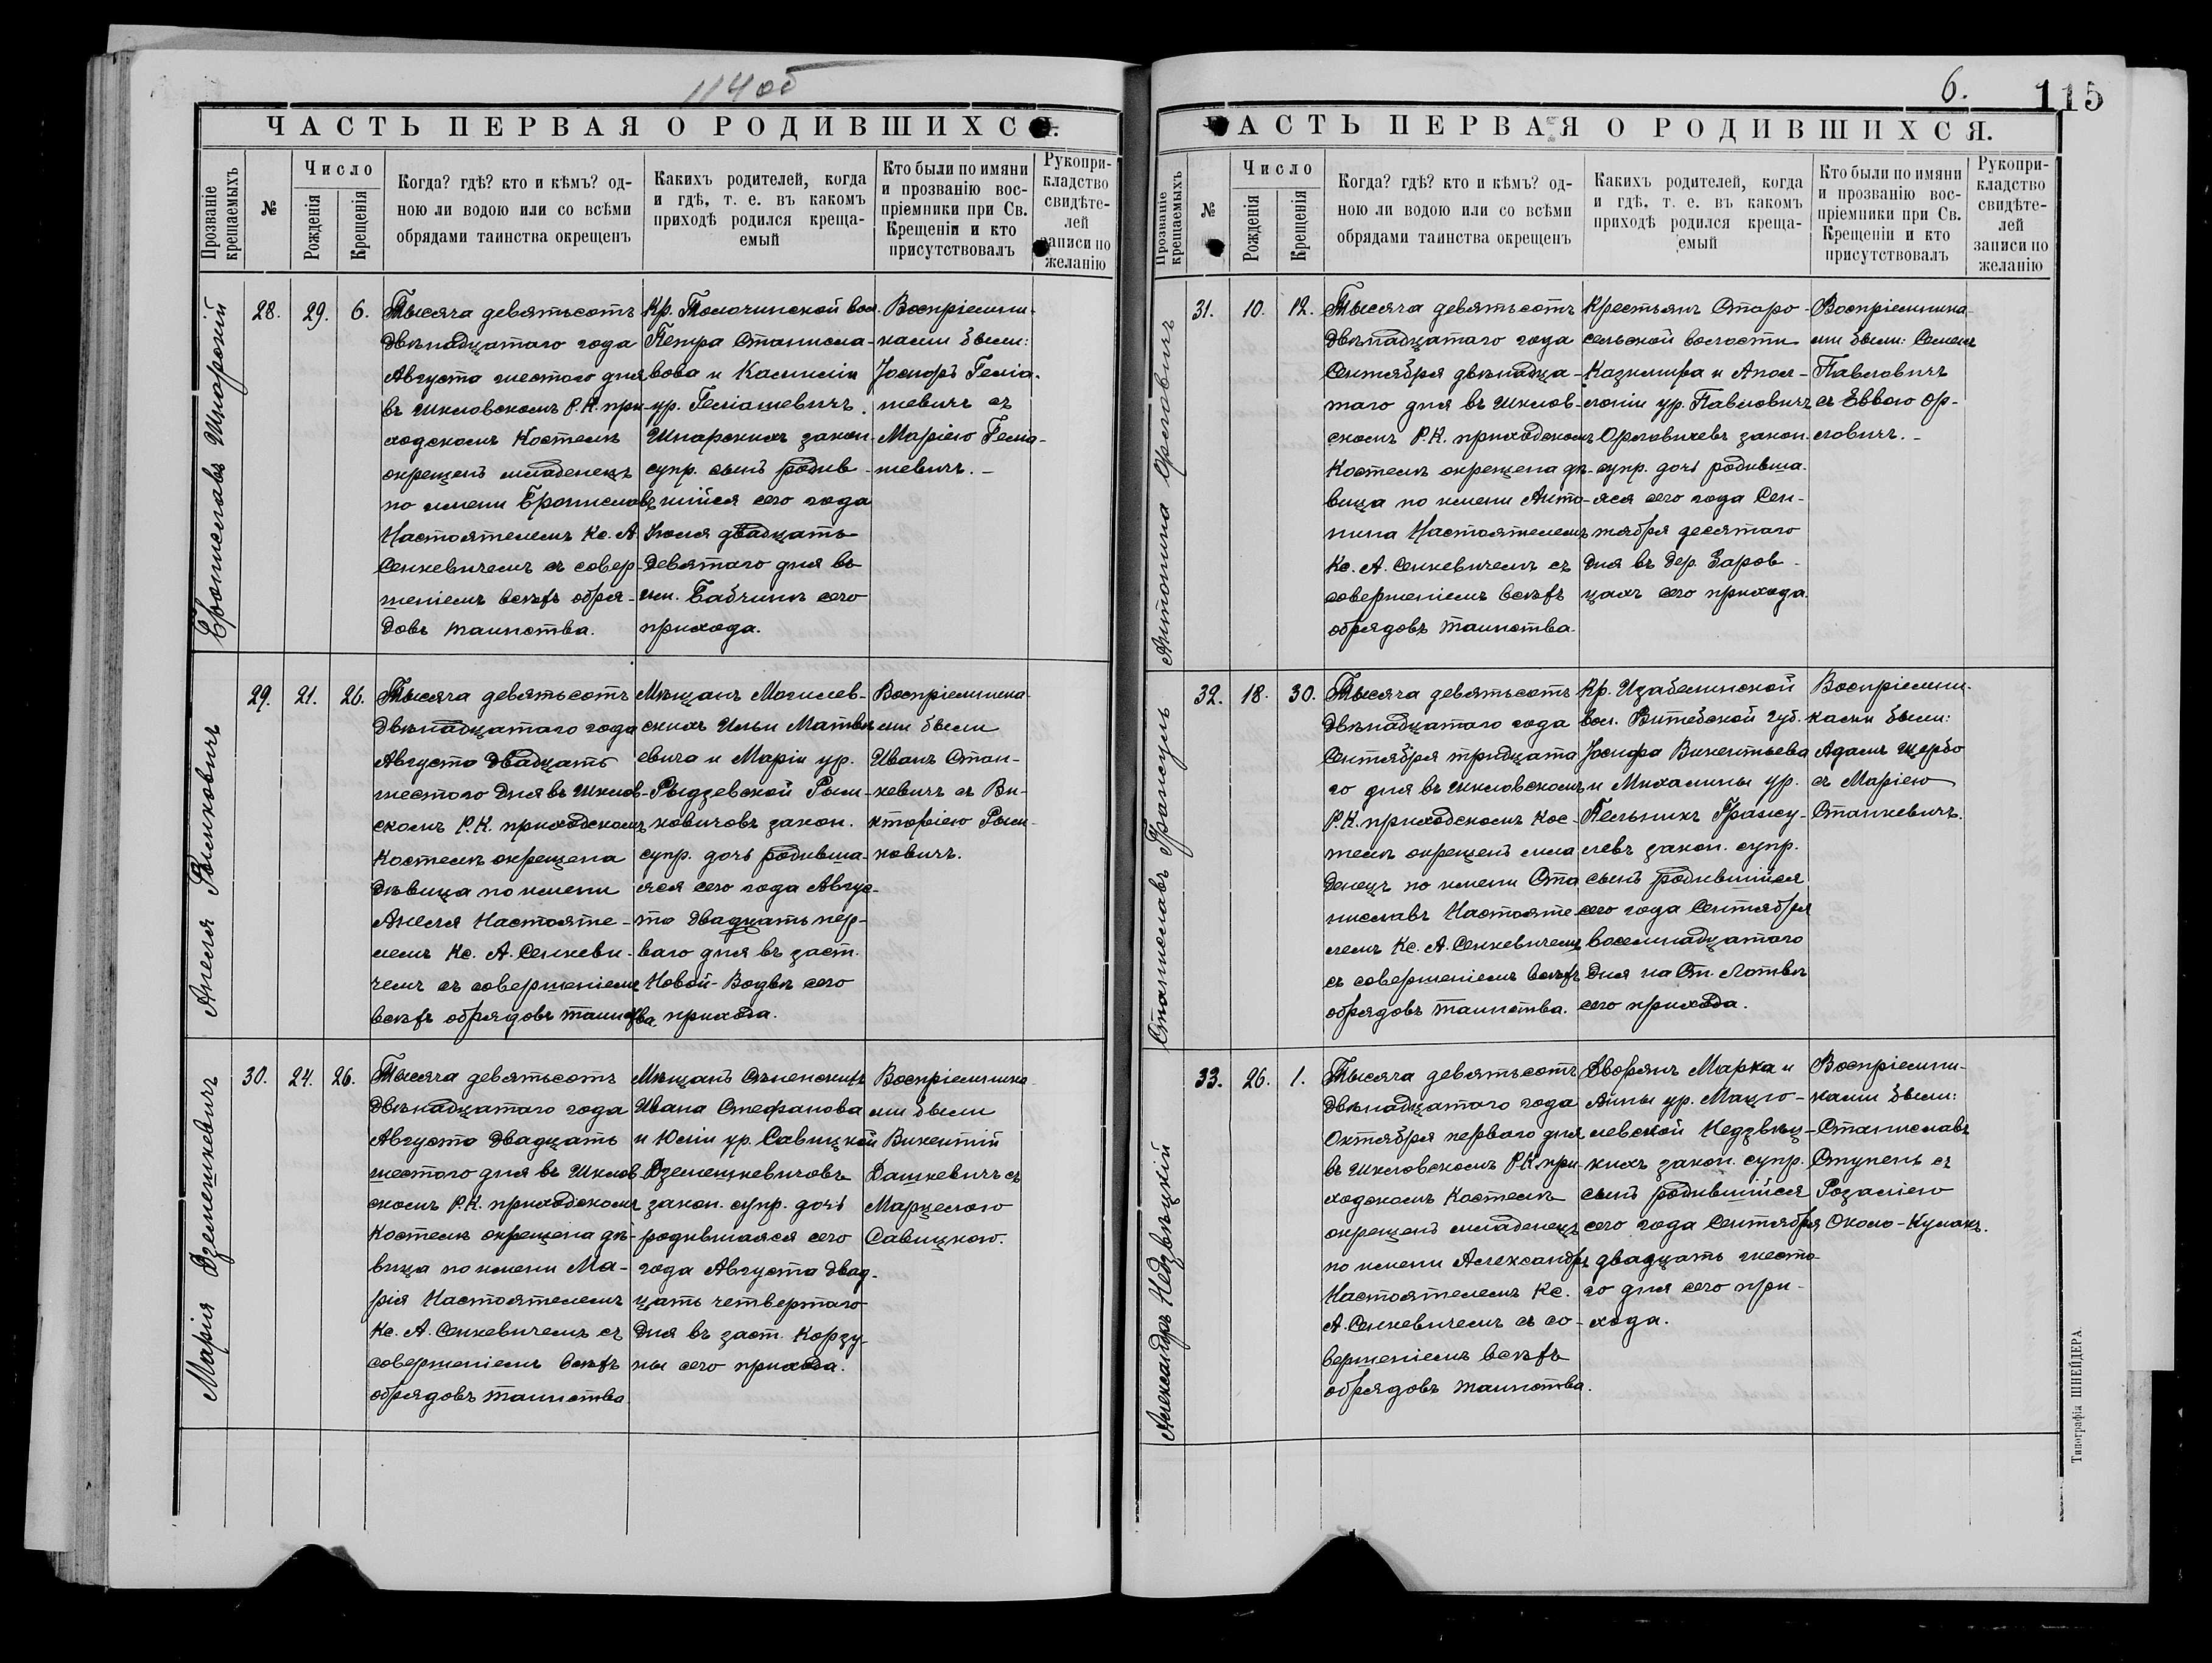 114 об
ЧАСТЬ ПЕРВАЯ О РОДИВШИХС
Прозваніе крещаемыхъ
№
Число
Рожденія
Крещенія
Когда? гдѣ? кто и кѣмъ? од-
ною ли водою или со всѣми
обрядами таинства окрещенъ
Какихъ родителей, когда
и гдѣ, т. е. въ какомъ
приходѣ родился креща-
емый
Кто были по имяни
и прозванію вос-
пріемники при Св.
Крещеніи и кто
присутствовалъ
Рукопри-
кладство
свидѣте-
лей
записи по
желанію
Брониславъ Шнарскій
28.
29.
6.
Тысяча девятьсотъ
двѣнадцатаго года
Августа шестого дня
въ Шкловскомъ Р.К. при-
ходскомъ Костелѣ
окрещенъ младенецъ
по имени Брониславъ
Настоятелемъ Кс. А.
Сенкевичемъ съ совер-
шеніемъ всѣхъ обря-
довъ таинства.
Кр. Толочинской вол.
Петра Станисла-
вова и Камиліи
ур. Геліашевичъ
Шнарскихъ закон.
супр. сынъ родив-
шійся сего года
Іюля двадцать
девятаго дня въ
им. Бабчинѣ сего
прихода.
Воспріемни-
ками были:
Іосифъ Геліа-
шевичъ съ
Маріею Геліа-
шевичъ. -
Анеля Рымковичъ
29.
21.
26.
Тысяча девятьсотъ
двѣнадцатаго года
Августа двадцать
шестого дня въ Шклов-
скомъ Р.К. приходскомъ
Костелѣ окрещена
дѣвица по имени
Анеля Настояте-
лемъ Кс. А. Сенкеви-
чемъ съ совершеніемъ
всѣхъ обрядовъ таинства.
Мѣщанъ Могилев-
скихъ Ильи Матвѣ-
евича и Маріи ур.
Рыдзевской Рым-
ковичовъ закон.
супр. дочь родивша-
яся сего года Авгус-
та двадцать пер-
ваго дня въ заст.
Новой-Водвѣ сего
прихода.
Воспріемника-
ми были
Иванъ Стан-
кевичъ съ Ви-
кторіею Рым-
ковичъ.
Марія Дземешкевичъ
30.
24.
26.
Тысяча девятьсотъ
двѣнадцатаго года
Августа двадцать
шестого дня въ Шклов-
скомъ Р.К. приходскомъ
Костелѣ окрещена дѣ-
вица по имени Ма-
рія Настоятелемъ
Кс. А. Сенкевичемъ съ
совершеніемъ всѣхъ
обрядовъ таинства.
Мѣщанъ Сѣненскихъ
Ивана Стефанова
и Юліи ур. Савицкой
Дземешкевичовъ
закон. супр. дочь
родившаяся сего
года Августа двад-
цать четвертаго
дня въ заст. Корзу-
ны сего прихода.
Воспріемника-
ми были
Викентій
Дашкевичъ съ
Марцелею
Савицкою.
6.
115
АСТЬ ПЕРВАЯ О РОДИВШИХСЯ.
Прозваніе крещаемыхъ
№
Число
Рожденія
Крещенія
Когда? гдѣ? кто и кѣмъ? од-
ною ли водою или со всѣми
обрядами таинства окрещенъ
Какихъ родителей, когда
и гдѣ, т. е. въ какомъ
приходѣ родился креща-
емый
Кто были по имяни
и прозванію вос-
пріемники при Св.
Крещеніи и кто
присутствовалъ
Рукопри-
кладство
свидѣте-
лей
записи по
желанію
Антонина Орловичъ
31.
10.
12.
Тысяча девятьсотъ
двѣнадцатаго года
Сентября двѣнадца-
таго дня въ Шклов-
скомъ Р.К. приходскомъ
Костелѣ окрещена дѣ-
вица по имени Анто-
нина Настоятелемъ
Кс. А. Сенкевичемъ съ
совершеніемъ всѣхъ
обрядовъ таинства.
Крестьянъ Старо-
сельской волости
Казимира и Апол-
лоніи ур. Павловичъ
Орловичевъ закон.
супр. дочь родивша-
яся сего года Сен-
тября десятаго
дня въ дер. Заров-
цахъ сего прихода.
Воспріемника-
ми были: Семенъ
Павловичъ
съ Еввою Ор-
ловичъ. -
Станиславъ Гранжуль
32.
18.
30.
Тысяча девятьсотъ
двѣнадцатаго года
Сентября тридцата-
го дня въ Шкловскомъ
Р.К. приходскомъ Кос-
телѣ окрещенъ мла-
денецъ по имени Ста-
ниславъ Настояте-
лемъ Кс. А. Сенкевичемъ
съ совершеніемъ всѣхъ
обрядовъ таинства.
Кр. Изабелинской
вол. Витебской губ.
Іосифа Викентьева
и Михалины ур.
Пельникъ Гранжу-
левъ закон. супр.
сынъ родившійся
сего года Сентября
восемнадцатаго
дня на Ст. Лотвѣ
сего прихода.
Воспріемни-
ками были:
Адамъ Щербо
съ Маріею
Станкевичъ.
Александръ Недзвѣцкій
33.
26.
1.
Тысяча девятьсотъ
двѣнадцатаго года
Октября перваго дня
въ Шкловскомъ Р.К. при-
ходскомъ Костелѣ
окрещенъ младенецъ
по имени Александръ
Настоятелемъ Кс.
А. Сенкевичемъ съ со-
вершеніемъ всѣхъ
обрядовъ таинства.
Дворянъ Марка и
Анны ур. Мацю-
левской Недзвѣц-
кихъ закон. супр.
сынъ родившійся
сего года Сентября
двадцать шесто-
го дня сего при-
хода.
Воспріемни-
ками были:
Станиславъ
Ступень съ
Розаліею
Около-Кулакъ.
Типографія ШНЕЙДЕРА.